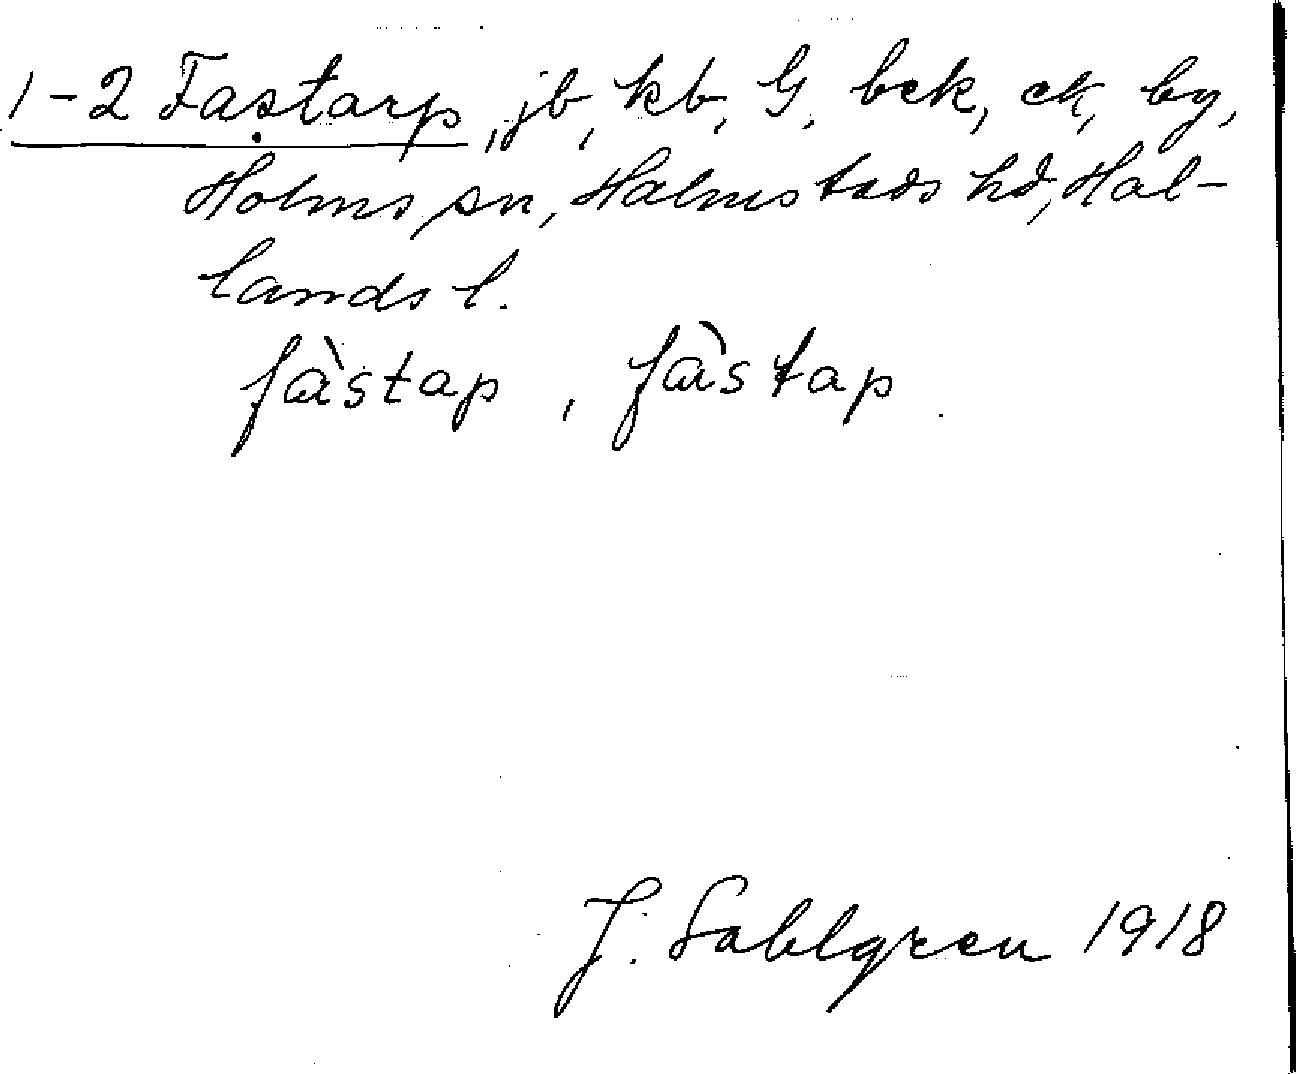 1-2 Fastarp, jb, kb, G, bek, ek, by,
Holms sn, Halmstads hd, Hal-
lands l.
fàstap, fàstap.
J. Sahlgren 1918